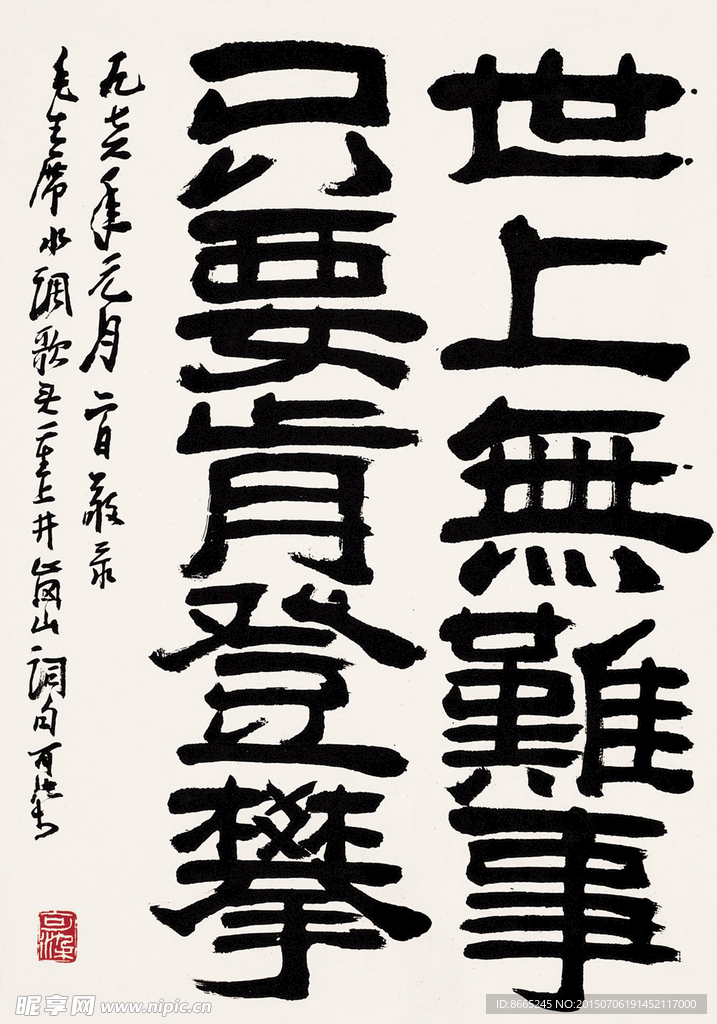 世上無難事
只要肯登攀
一九七六年元月敬录
毛主席水調歌头重上井崗山詞句可染
可染
昵享网 www.nipic.cn
ID:8665245 NO:20150706191452117000